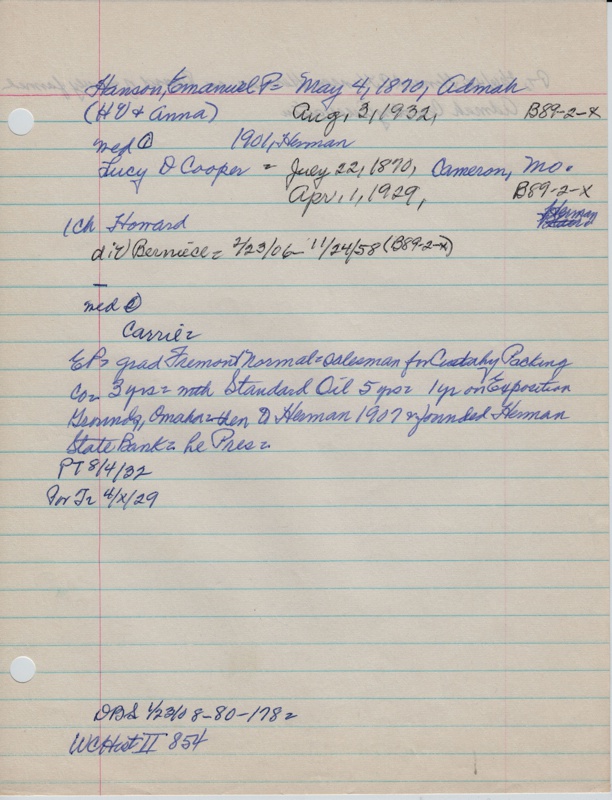 Hanson, Emanuel P= May 4, 1870, Admah
(HV & Anna) Aug. 3, 1932, B89-2-X
med ① 1901, Herman
Lucy D Cooper = July 22, 1870, Cameron, Mo.
Apr. 1, 1929, B89-2-X
Herman
1 ch Howard
div) Berniece = 2/23/06 - 11/24/58 (B89-2-X)
med ②
Carrie =
EP= grad Fremont Normal = salesman for Cudahy Packing
Co= 3 yrs = with Standard Oil 5 yrs = 1 yr on Exposition
Grounds, Omaha = then to Herman 1907 & founded Herman
State Bank = he Pres =
PT 8/4/32
Por Tr 4/X/29
DBS 1/23/08-80-178=
WCHist II 854